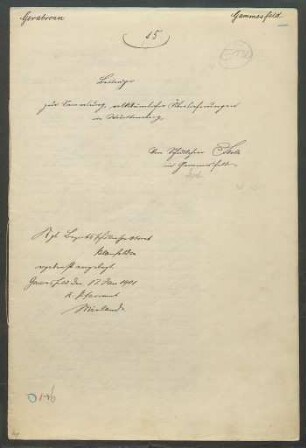 Gerabronn
Gammesfeld
15
Beiträge
zur Sammlung volkstümlicher Überlieferungen
in Württemberg
Von Schullehrer
in Gammesfeld
Kgl. Bezirksschulinspektorat
Blaufelden
ergebenst vorgelegt
Gammesfeld den 17. Jan 1901
K. Pfarramt
Wieland